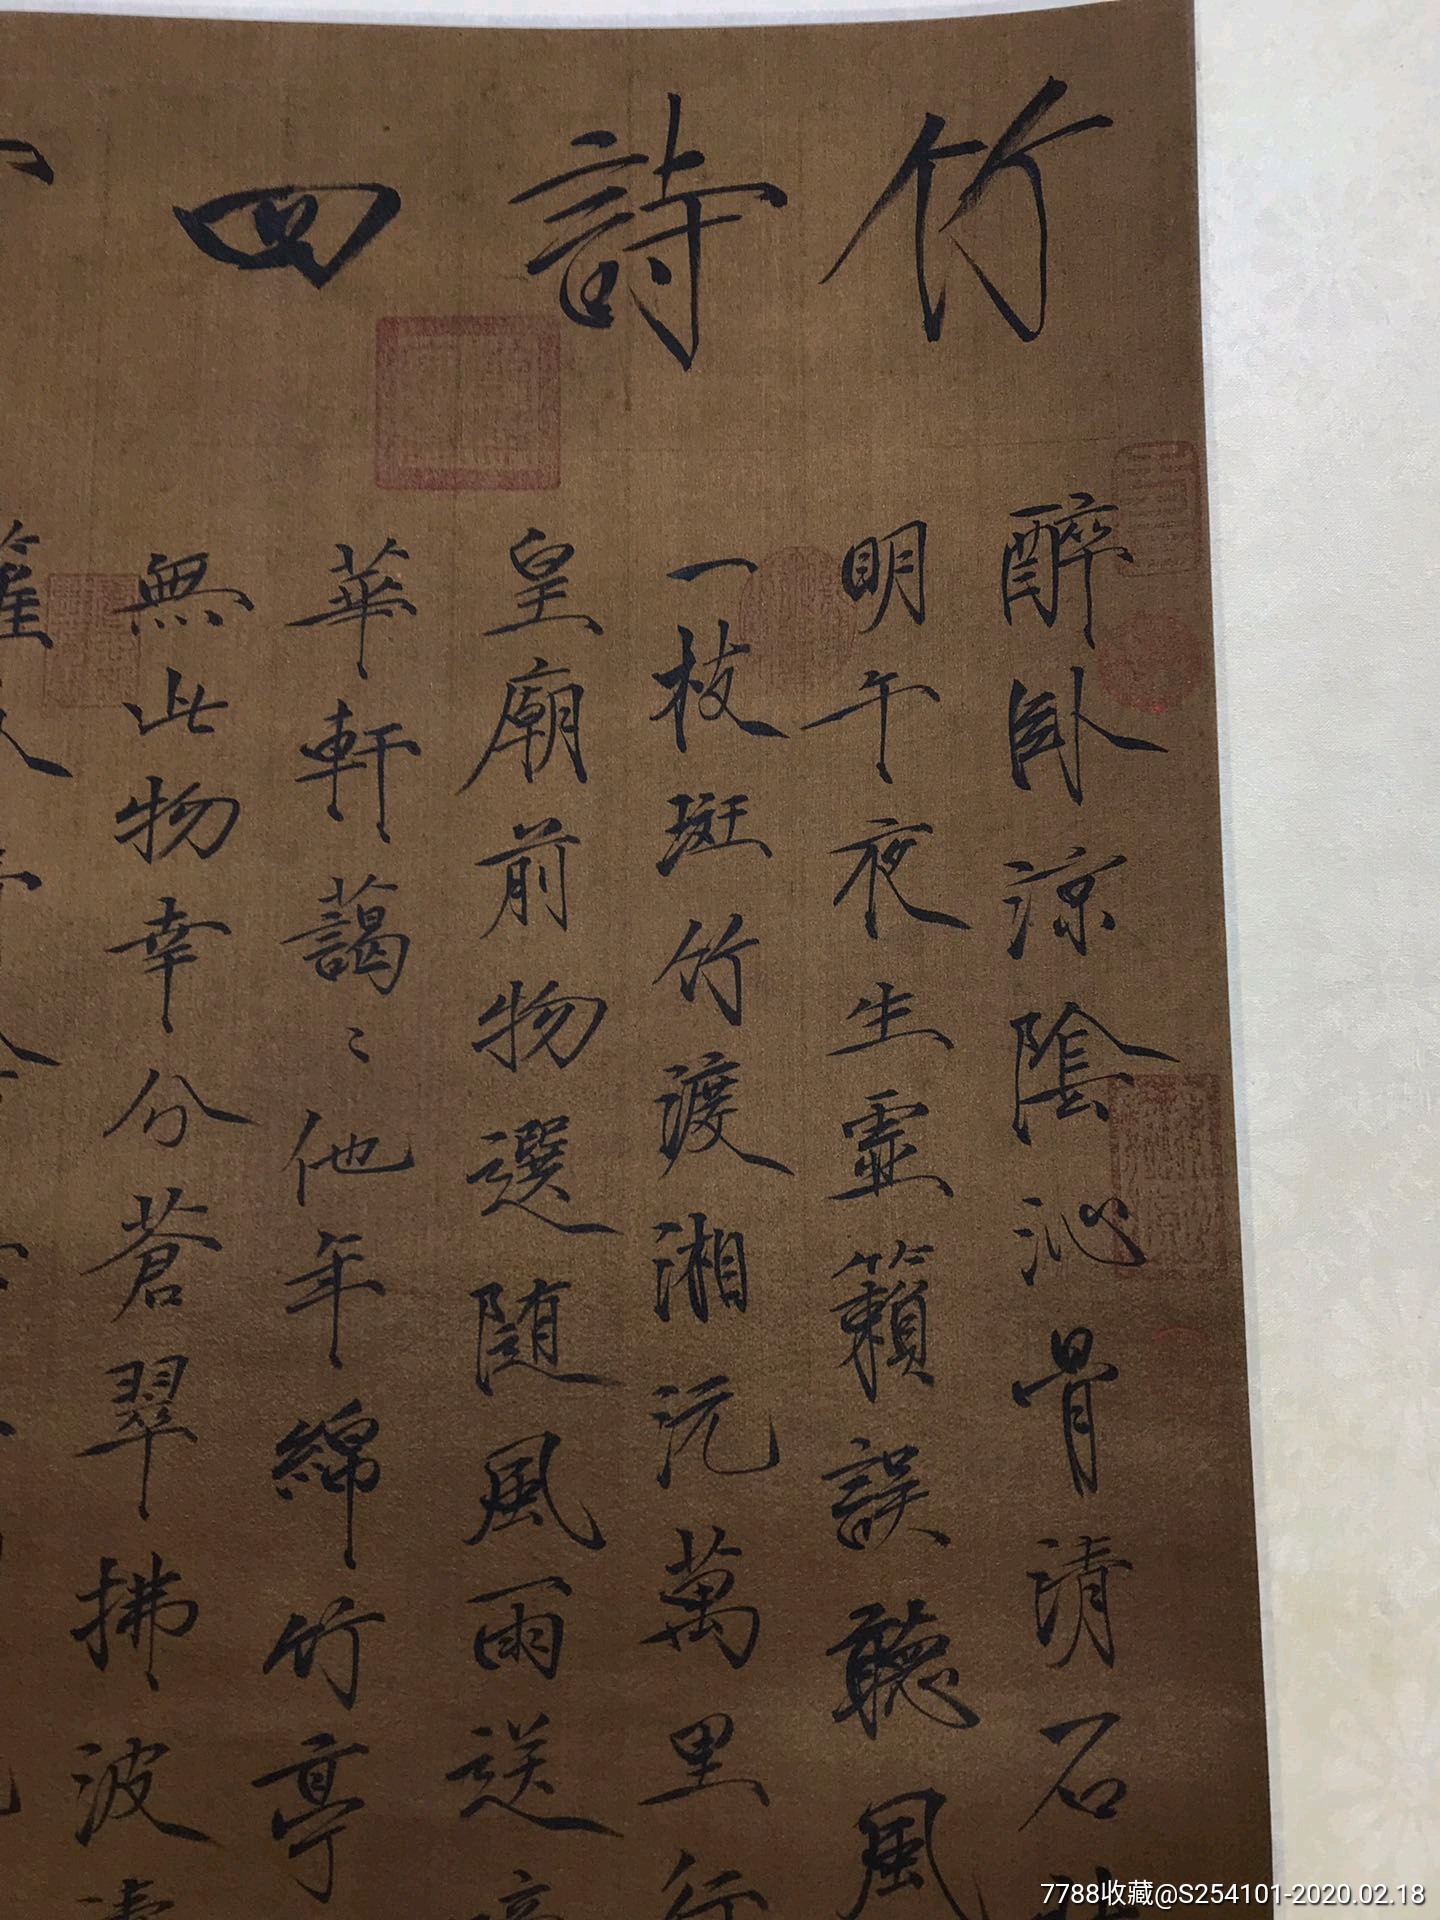 竹詩四
醉卧涼陰沁骨清石
明午夜生靈籟誤聽風
一枝斑竹渡湘沅萬里行
皇廟前物選随風雨送
華軒藹〻他年綿竹亭
無此物幸分蒼翠拂波
7788收藏@S254101-2020.02.18